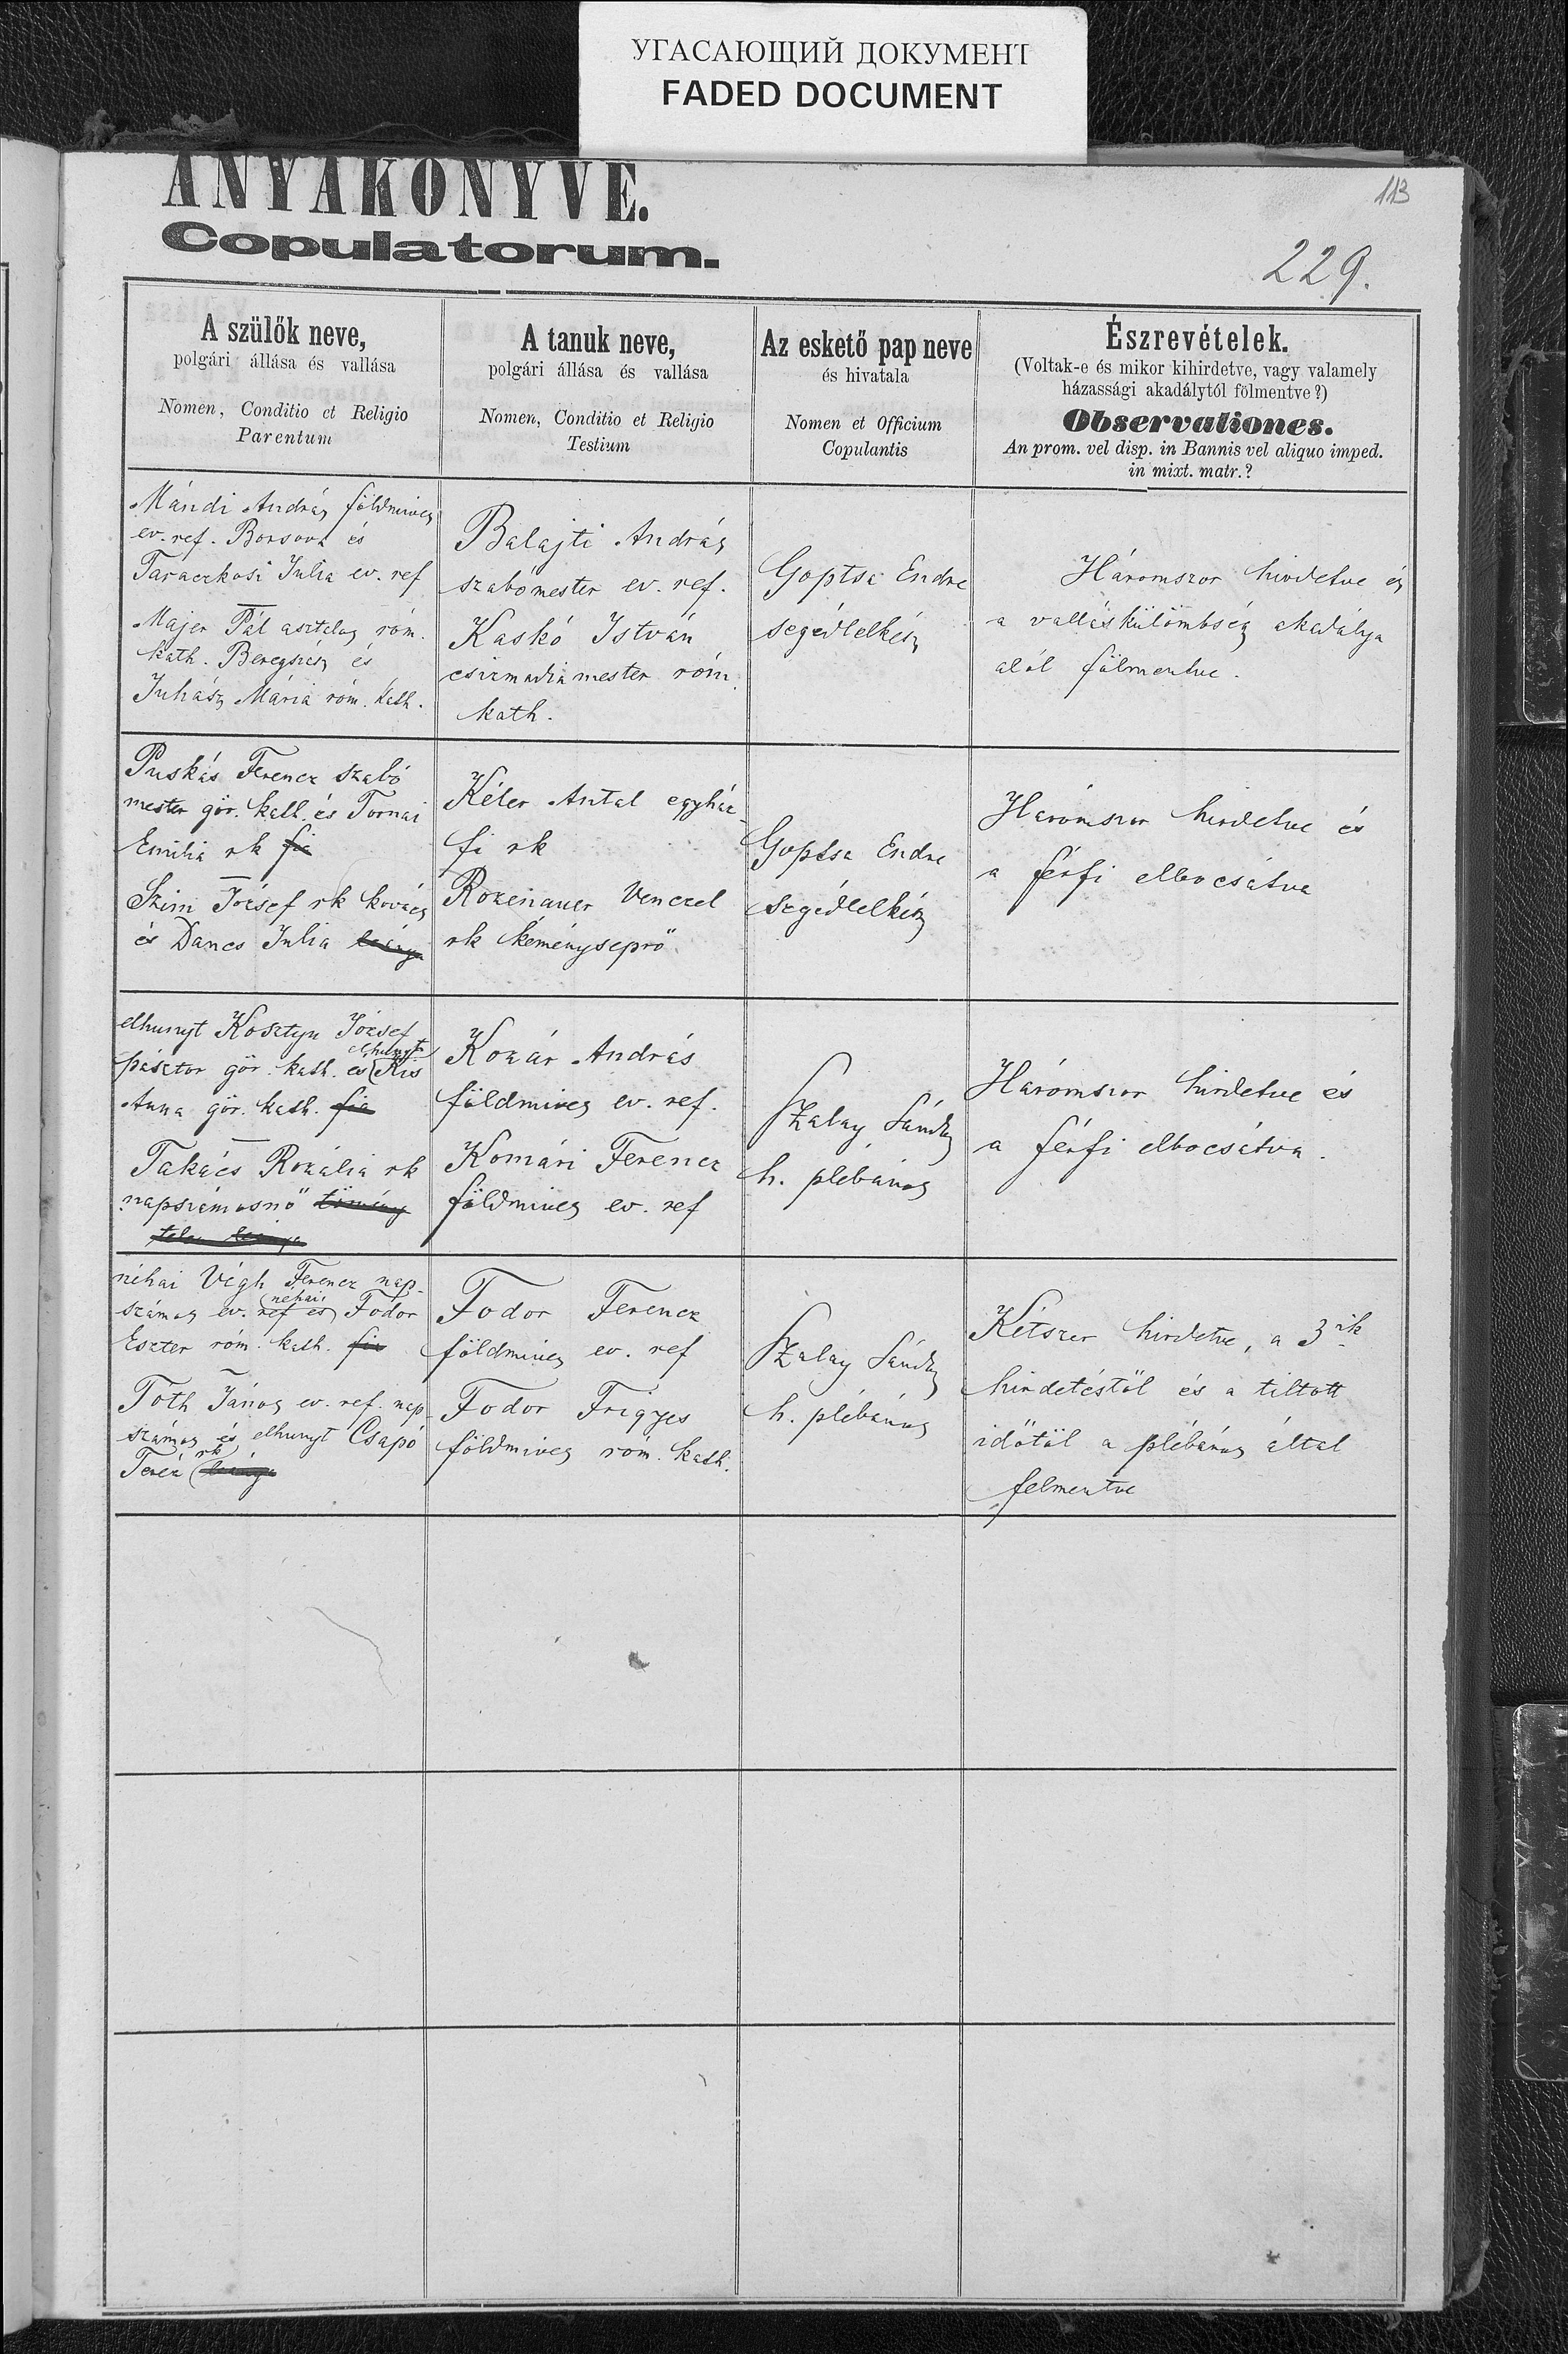 УГАСАЮЩИЙ ДОКУМЕНТ
FADED DOCUMENT
ANYAKÖNYVE.
Copulatorum.
113
229.
A szülők neve,
polgári állása és vallása
Nomen, Conditio et Religio
Parentum
A tanuk neve,
polgári állása és vallása
Nomen, Conditio et Religio
Testium
Az eskető pap neve
és hivatala
Nomen et Officium
Copulantis
Észrevételek.
(Voltak-e és mikor kihirdetve, vagy valamely
házassági akadálytól fölmentve?)
Observationes.
An prom. vel disp. in Bannis vel aliquo imped.
in mixt. matr.?
Mándi András földmives
ev. ref. Borsova és
Taraczkosi Julia ev. ref
Majer Pál asztalos róm.
kath. Beregszász és
Juhász Mária róm. kath.
Balajti András
szabómester ev. ref.
Kaskó István
csizmadia mester róm.
kath.
Goptsa Endre
segédlelkész
Háromszor hirdetve és
a valláskülömbség akadálya
alól fölmentve.
Puskás Ferencz szabó
mester gör. kath. és Tornai
Emilia rk fia
Szim József rk kovács
és Dancs Julia leánya
Kéler Antal egyház-
fi rk
Rozenauer Venczel
rk kéményseprő
Goptsa Endre
segédlelkész
Háromszor hirdetve és
a férfi elbocsátva
elhunyt Kosztyu József
pásztor gör. kath. és elhunyt Kis
Anna gör. kath. fia
Takács Rozália rk
napszámosnő törvény
telen leánya
Kozár András
földmives ev. ref.
Komári Ferencz
földmives ev. ref
Szalay Sándor
h. plébános
Háromszor hirdetve és
a férfi elbocsátva.
néhai Végh Ferencz nap-
számos ev. ref és néhai Fodor
Eszter róm. kath. fia
Tóth János ev. ref. nap-
számos és elhunyt Csapó
Teréz rk leánya
Fodor Ferencz
földmives ev. ref
Fodor Frigyes
földmives róm. kath.
Szalay Sándor
h. plébános
Kétszer hirdetve, a 3ik
hirdetéstől és a tiltott
időtől a plébános által
felmentve